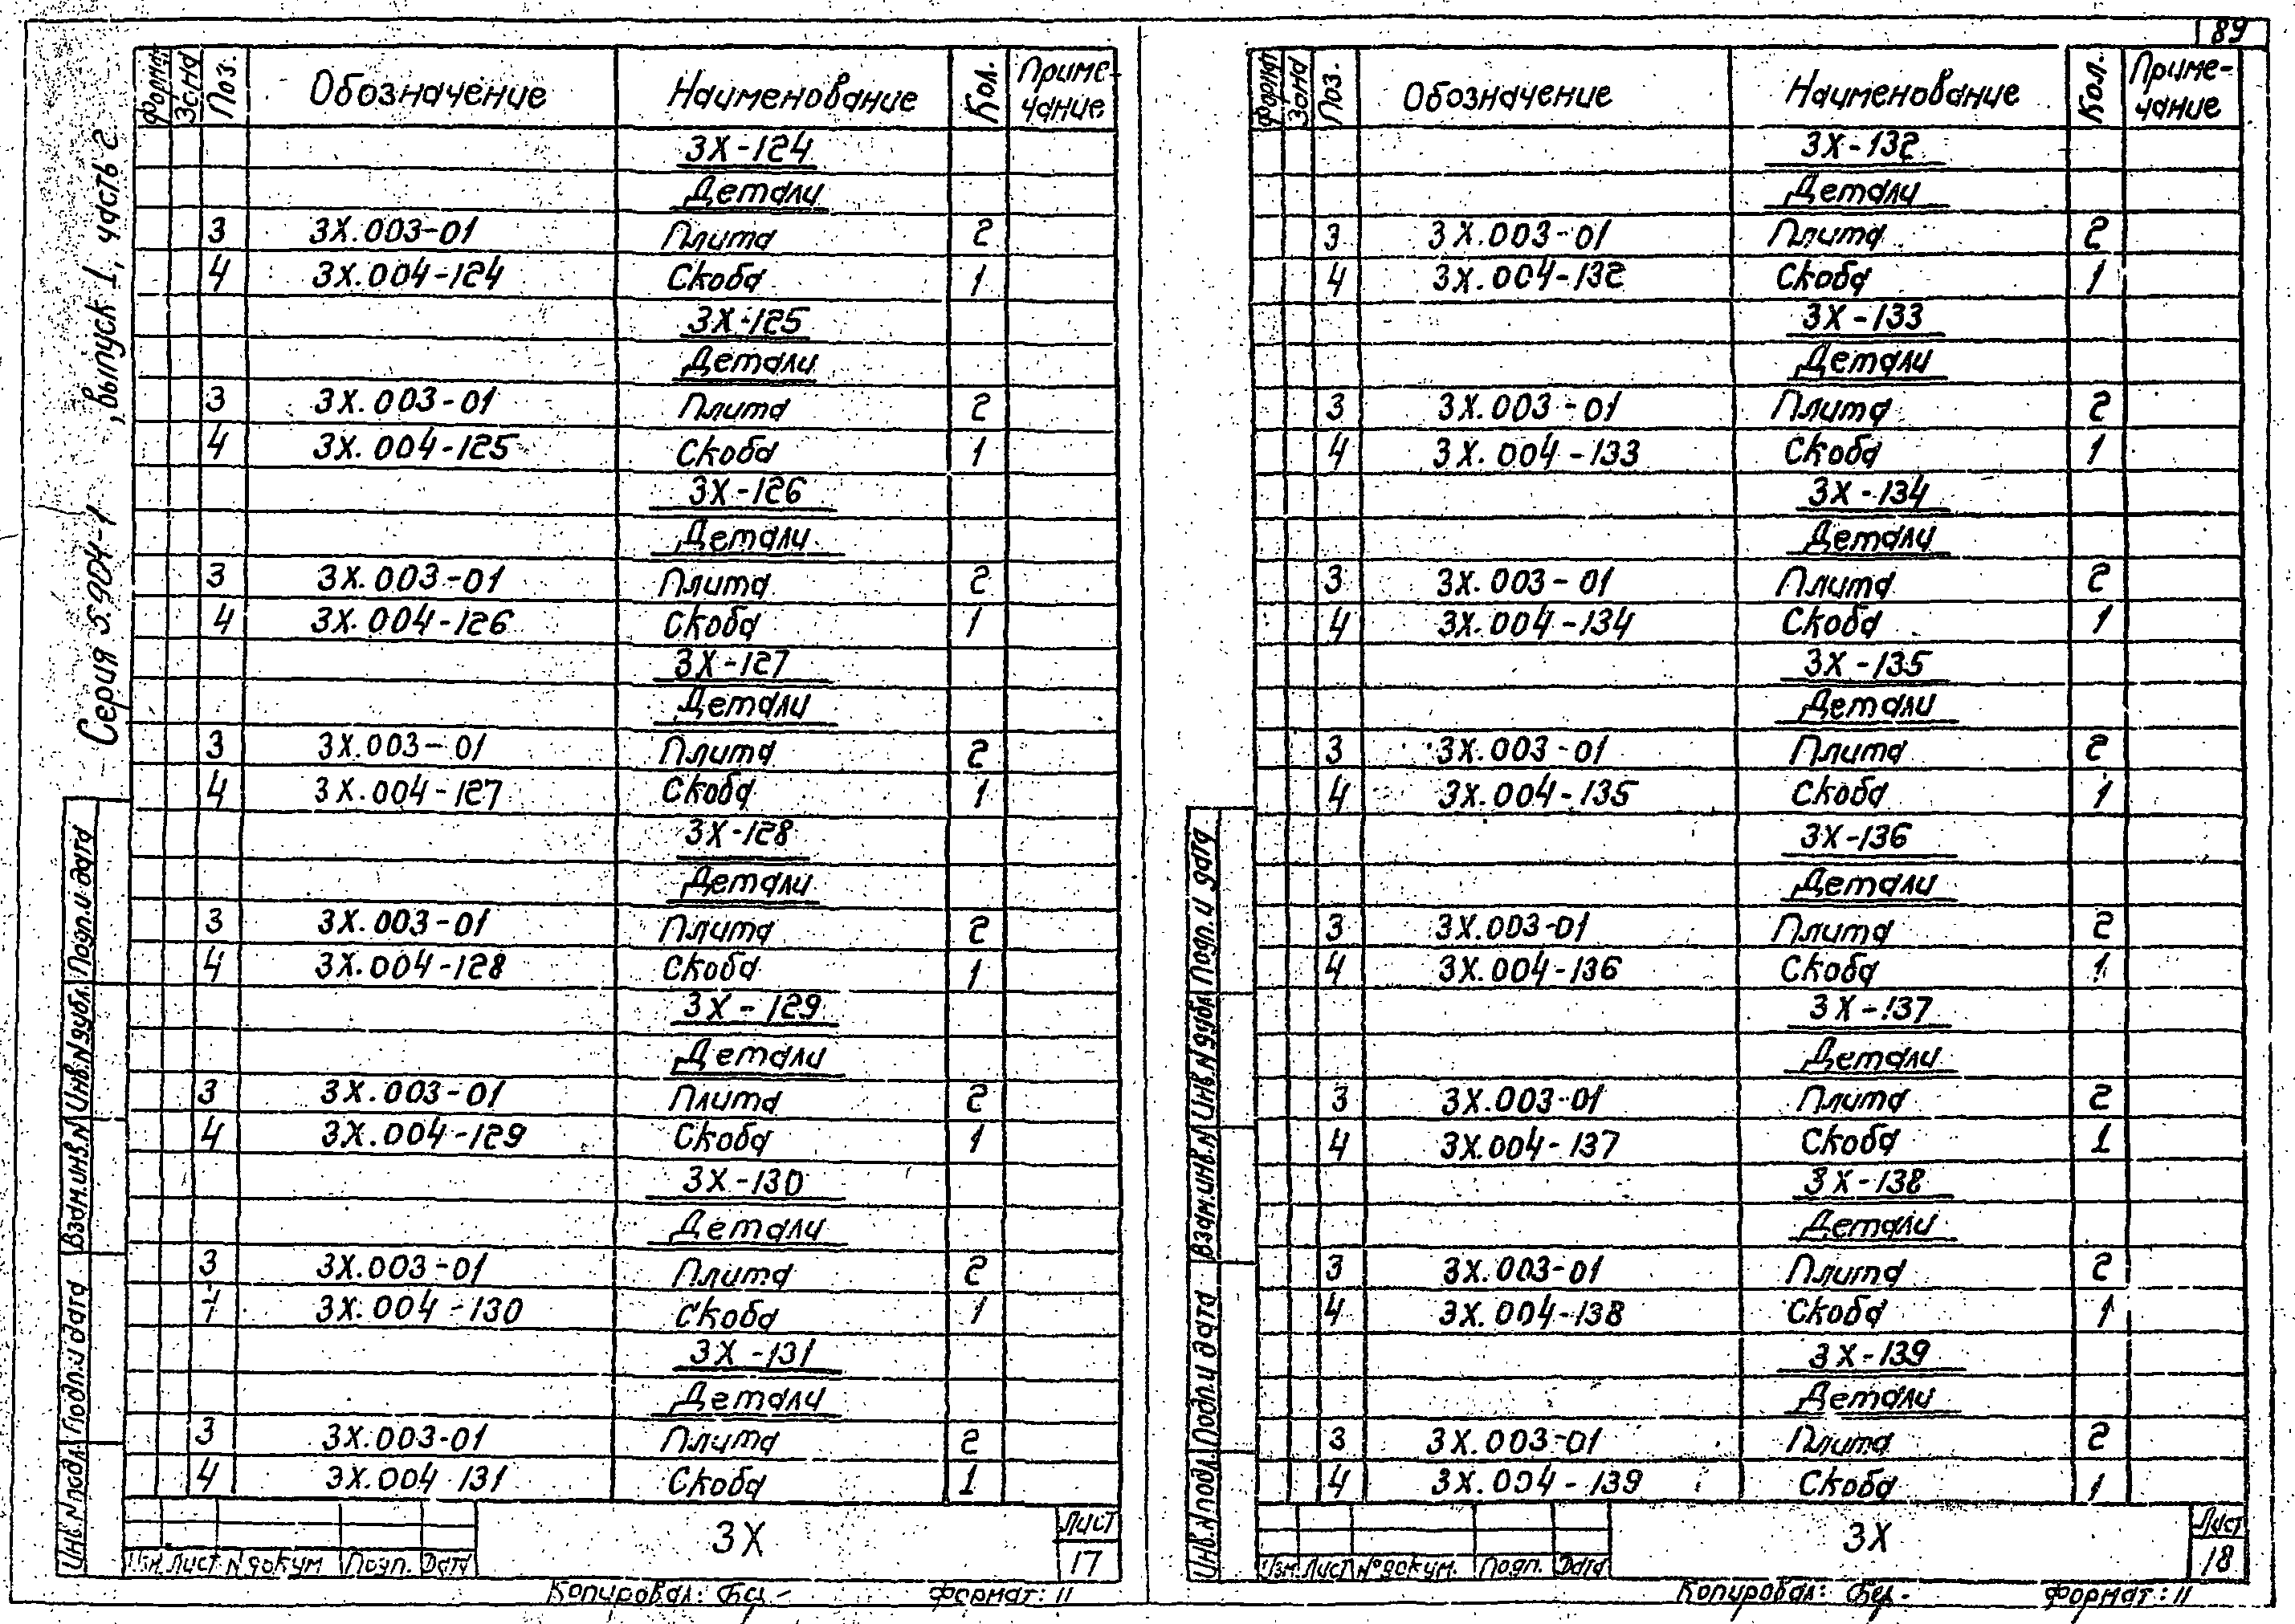 89
Серия 5.904-1 , выпуск 1, часть 2
Формат Зона Поз. Обозначение Наименование Кол. Приме-
чание
ЗХ-124
Детали
3 ЗХ.003-01 Плита 2
4 ЗХ.004-124 Скоба 1
ЗХ-125
Детали
3 ЗХ.003-01 Плита 2
4 ЗХ.004-125 Скоба 1
ЗХ-126
Детали
3 ЗХ.003-01 Плита 2
4 ЗХ.004-126 Скоба 1
ЗХ-127
Детали
3 ЗХ.003-01 Плита 2
4 ЗХ.004-127 Скоба 1
ЗХ-128
Детали
3 ЗХ.003-01 Плита 2
4 ЗХ.004-128 Скоба 1
ЗХ-129
Детали
3 ЗХ.003-01 Плита 2
4 ЗХ.004-129 Скоба 1
ЗХ-130
Детали
3 ЗХ.003-01 Плита 2
4 ЗХ.004-130 Скоба 1
ЗХ-131
Детали
3 ЗХ.003-01 Плита 2
4 ЗХ.004 131 Скоба 1
Подп.и дата
Инв.N дубл.
Взам.инв.N
Подп.и дата
Инв.N подл.
Изм. Лист N докум Подп. Дата
ЗХ
Лист
17
Копировал: Формат: 11
Формат Зона Поз. Обозначение Наименование Кол. Приме-
чание
ЗХ-132
Детали
3 ЗХ.003-01 Плита 2
4 ЗХ.004-132 Скоба 1
ЗХ-133
Детали
3 ЗХ.003-01 Плита 2
4 ЗХ.004-133 Скоба 1
ЗХ-134
Детали
3 ЗХ.003-01 Плита 2
4 ЗХ.004-134 Скоба 1
ЗХ-135
Детали
3 ЗХ.003-01 Плита 2
4 ЗХ.004-135 Скоба 1
ЗХ-136
Детали
3 ЗХ.003-01 Плита 2
4 ЗХ.004-136 Скоба 1
ЗХ-137
Детали
3 ЗХ.003-01 Плита 2
4 ЗХ.004-137 Скоба 1
ЗХ-138
Детали
3 ЗХ.003-01 Плита 2
4 ЗХ.004-138 Скоба 1
ЗХ-139
Детали
3 ЗХ.003-01 Плита 2
4 ЗХ.004-139 Скоба 1
Подп.и дата
Инв.N дубл
Взам.инв.N
Подп.и дата
Инв.N подл.
Изм. Лист N°докум. Подп. Дата
ЗХ
Лист
18
Копировал: Формат: 11